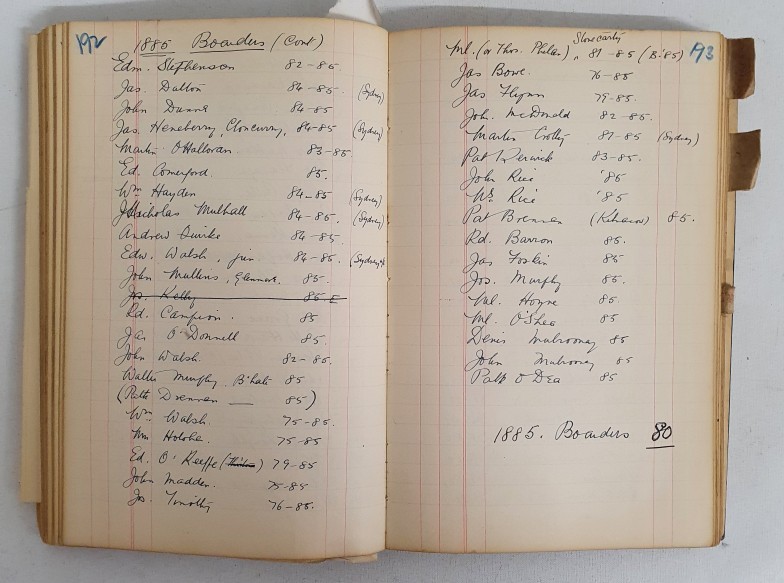 192
1885 Boarders (Cont)
Edm. Stephenson 82-85.
Jas. Dalton 84-85. (Sydney)
John Dunne 84-85
Jas. Heneberry, Cloncurry, 84-85 (Sydney)
Martin O'Halloran. 83-85.
Ed. Comerford. 85.
Wm Hayden 84-85 (Sydney)
Nicholas Mulhall 84-85. (Sydney)
Andrew Quirke 84-85
Edw. Walsh, jun. 84-85. (Sydney)
John Mullins, Glenmore. 85.
Jos. Kelly 85.
Rd. Campion. 85
Jas O'Donnell 85.
John Walsh. 82-85.
Walter Murphy B'hale 85
(Patk Drennan — 85)
Wm Walsh. 75-85.
75-85
Ed. O'Keeffe 79-85
John Madden. 75-85
Jos. Timothy 76-85.
193
Stonecarty
Ml. (or Thos. Phelan) 81-85 (B.'85)
Jas Bowe. 76-85
Jas Flynn 79-85.
John McDonald 82-85.
Martin Crotty 81-85 (Sydney)
Pat Derwick 83-85.
John Rice '85
Wm Rice '85
Pat Brennan 85.
Rd. Barron 85.
Jas Foskin 85.
Jos. Murphy 85.
Ml. Hoyne 85.
Ml. O'Shea 85
Denis Mulrooney 85
John Mulrooney 85
Patk O Dea 85
1885. Boarders 80